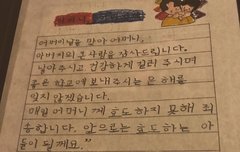 어버이날을 맞아 어머니,
아버지의 큰 사랑을 감사드립니다.
낳아주시고 건강하게 길러 주시며
좋은 학교에 보내주시는 은혜를
잊지 않겠습니다.
매일 어머니께 효도하지 못해 죄
송합니다. 앞으로는 효도하는 아
들이 될께요."